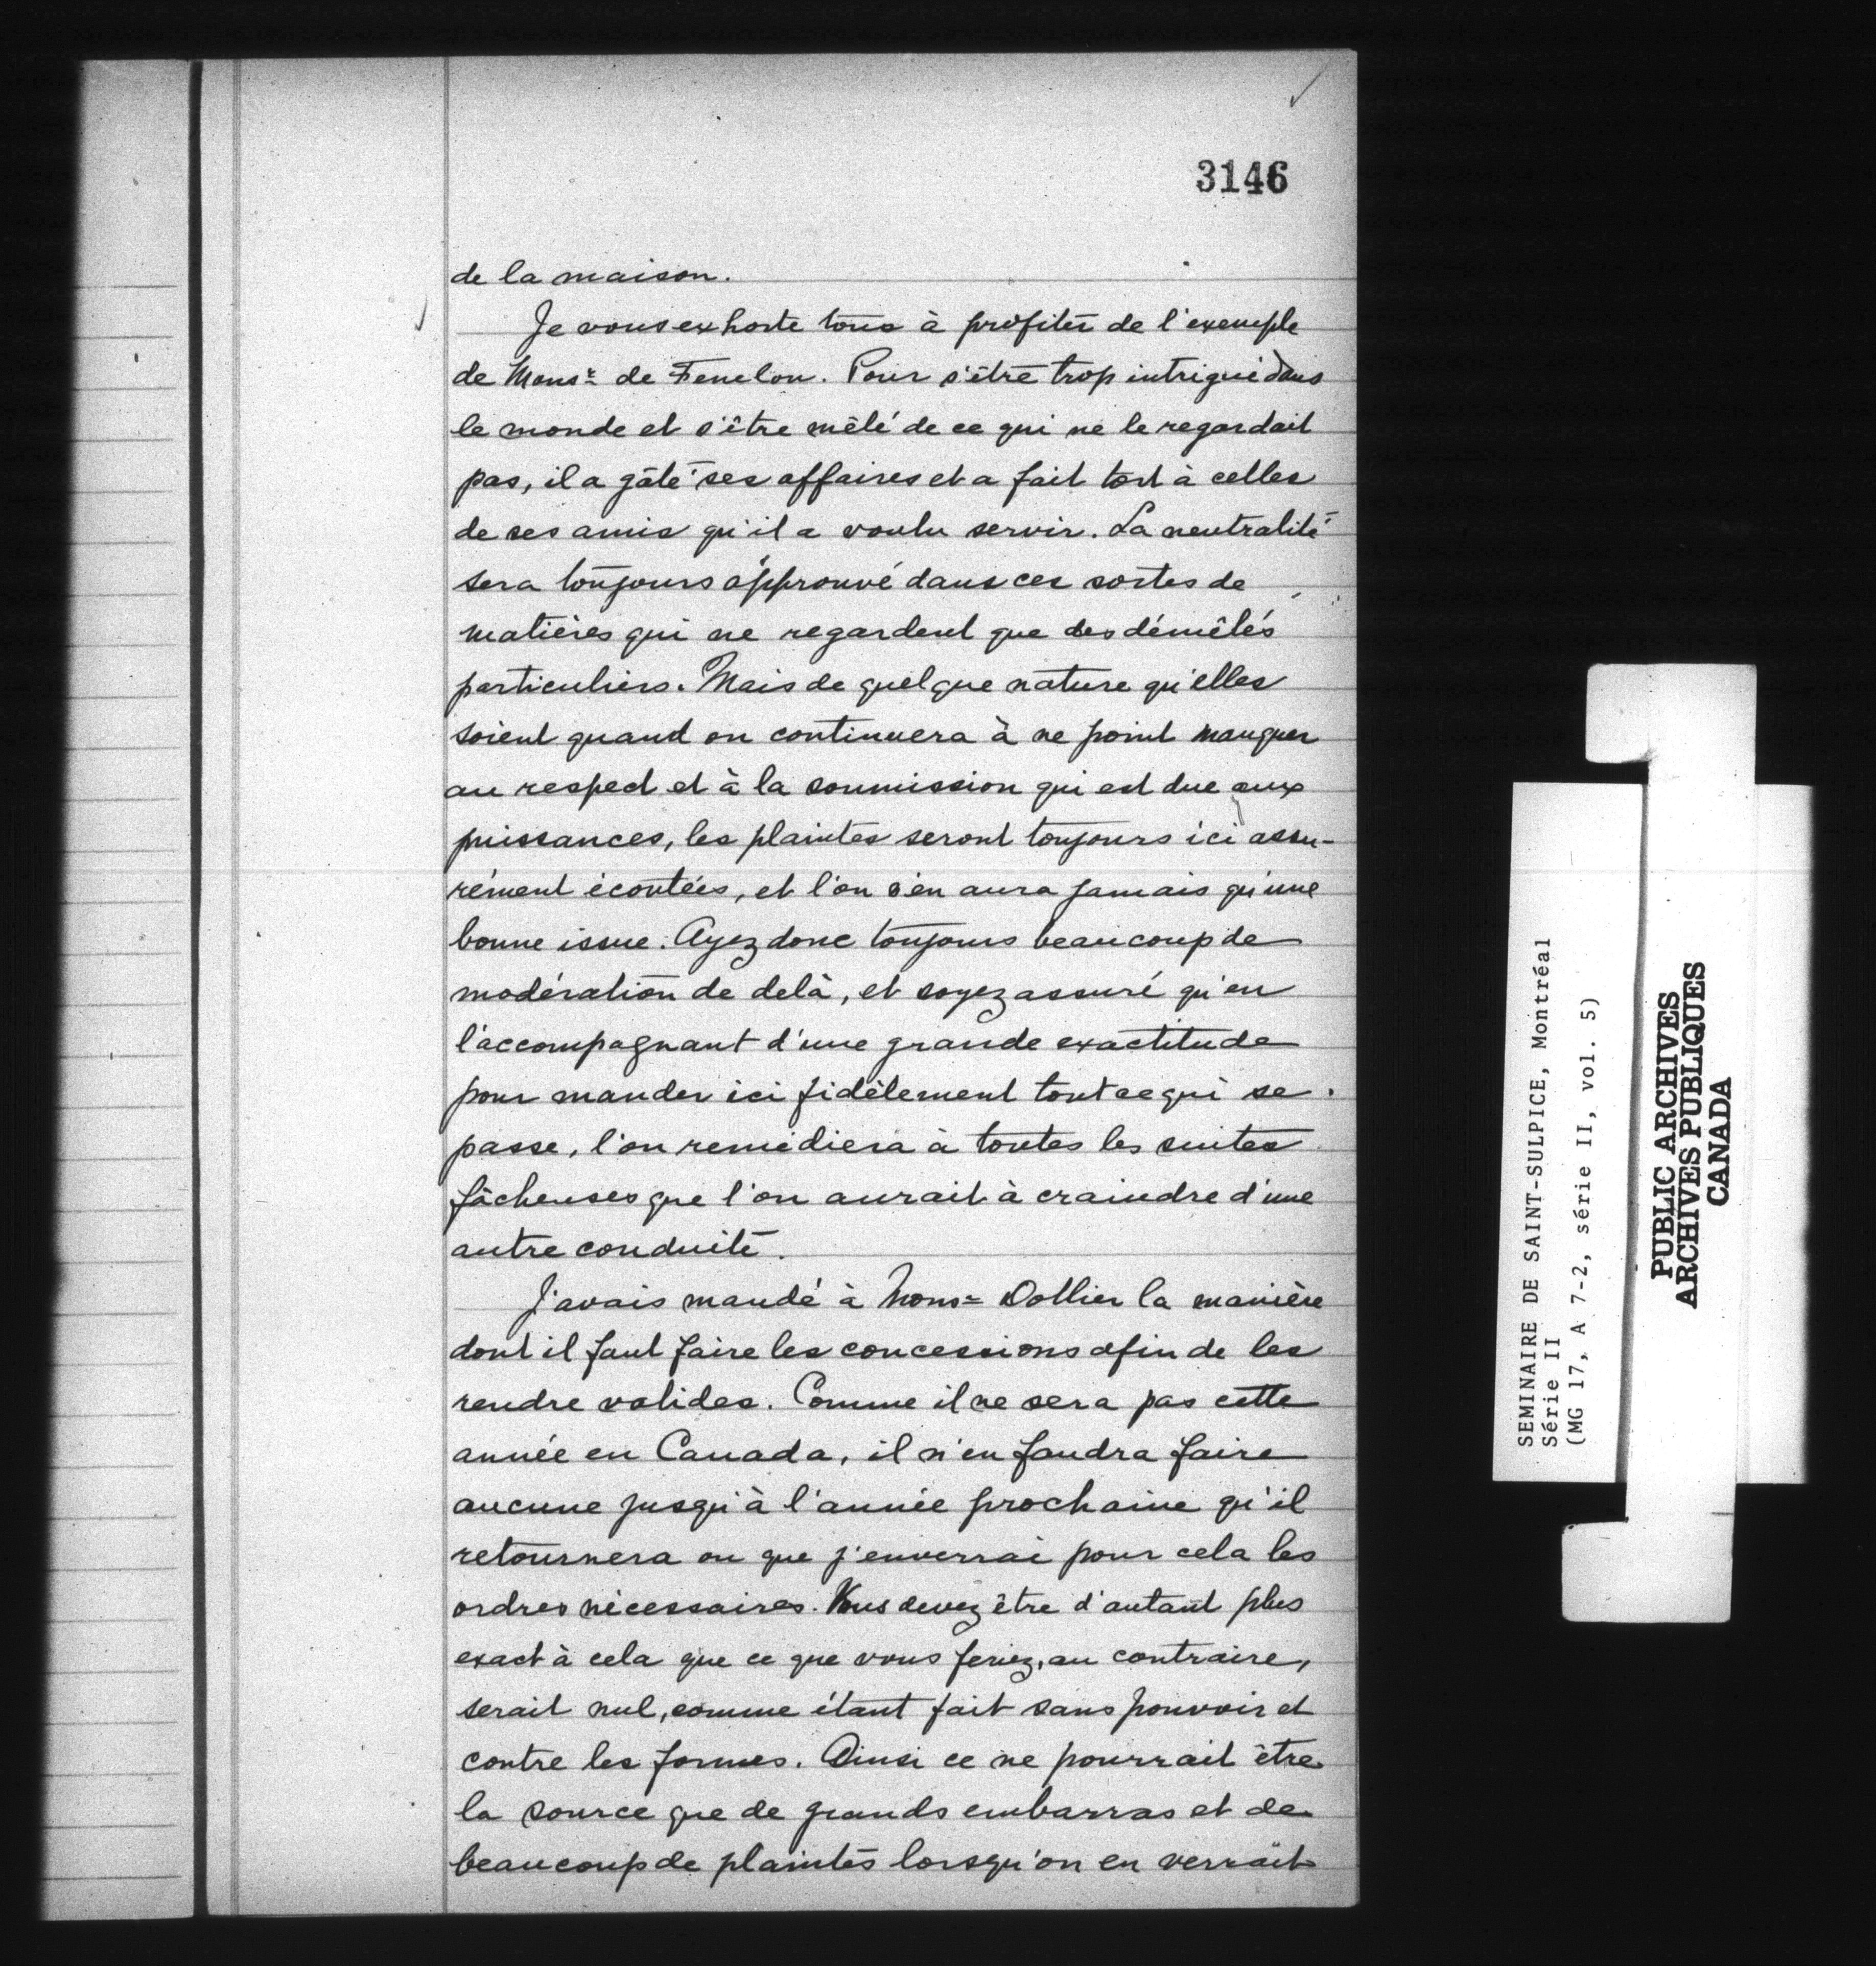 3146
de la maison.
Je vous exhorte tous à profiter de l'exemple
de Monsr de Fenelon. Pour s'être trop intrigué dans
le monde et s'être mêlé de ce qui ne le regardait
pas, il a gâté ses affaires et a fait tort à celles
de ses amis qu'il a voulu servir. La neutralité
sera toujours approuvé dans ces sortes de
matières qui ne regardent que des démêlés
particuliers. Mais de quelque nature qu'elles
soient quand on continuera à ne point manquer
au respect et à la soumission qui est due aux
puissances, les plaintes seront toujours ici assu-
rément écoutées, et l'on n'en aura jamais qu'une
bonne issue. Ayez donc toujours beaucoup de
modération de delà, et soyez assuré qu'en
l'accompagnant d'une grande exactitude
pour mander ici fidèlement tout ce qui se
passe, l'on remédiera à toutes les suites
fâcheuses que l'on aurait à craindre d'une
autre conduite.
J'avais mandé à Mons= Dollier la manière
dont il faut faire les concessions afin de les
rendre valides. Comme il ne sera pas cette
année en Canada, il n'en faudra faire
aucune jusqu'à l'année prochaine qu'il
retournera ou que j'enverrai pour cela les
ordres nécessaires. Vous devez être d'autant plus
exact à cela que ce que vous feriez, au contraire,
serait nul, comme étant fait sans pouvoir et
contre les formes. Ainsi ce ne pourrait être
la source que de grands embarras et de
beaucoup de plaintes lorsqu'on en verrait
SEMINAIRE DE SAINT-SULPICE, Montréal
Série II
(MG 17, A 7-2, série II, vol. 5)
PUBLIC ARCHIVES
ARCHIVES PUBLIQUES
CANADA